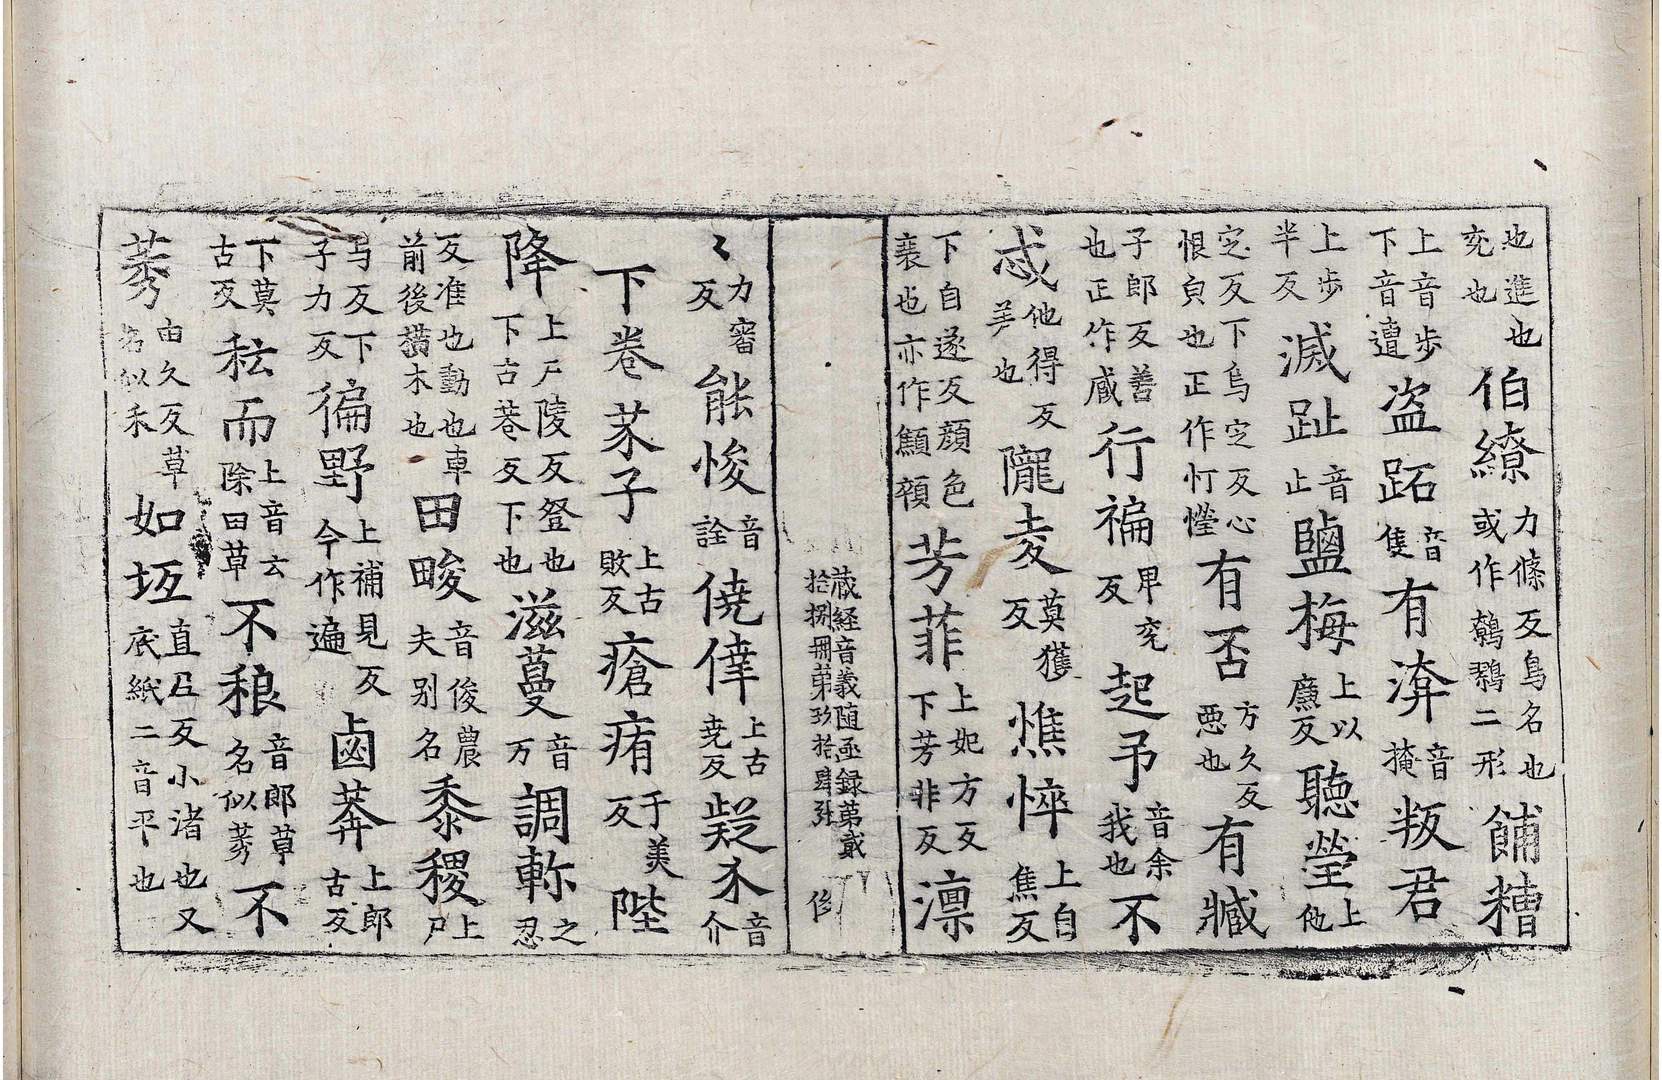 也進也充也伯繚力條反鳥名也或作鷯鷚二形餔糟
上音步下音遺盗跖音隻有渰音掩叛君
上步半反滅趾音止鹽梅上以廉反聽瑩上他
定反下烏定反心恨皃也正作忊憕有否方久反惡也有臧
子郎反善也正作臧行褊卑兖反起予音余我也不
忒他得反差也隴㚇莫獲反憔悴上自焦反
下自遂反顔色衰也亦作顦顇芳菲上妃方反下芳非反凛
藏経音義随函録第貳拾捌冊第玖拾肆張
〻力審反能悛音詮僥倖上古尭反疑釆音介
下卷芥子上古敗反瘡痏于美反陛
降上户陵反登也下古巷反下也滋蔓音万調軫之忍
反准也動也車前後横木也田畯音俊農夫别名黍稷上
与反下子力反徧野上補見反今作遍鹵莽上郎古反
下莫古反秐而上音云除田草不稂音郎草名似莠不
莠由久反草名似禾如坻直𡰱反小渚也又底紙二音平也